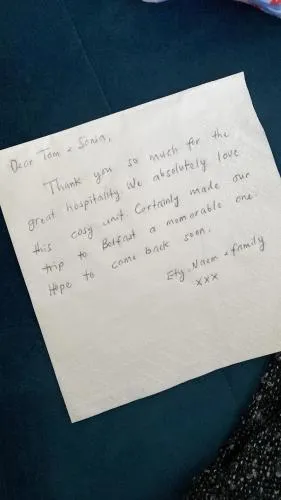 Dear Tom & Sonia,
Thank you so much for the
great hospitality. We absolutely love
this cosy unit. Certainly made our
trip to Belfast a memorable one.
Hope to come back soon.
Ety, Naem & family
xxx